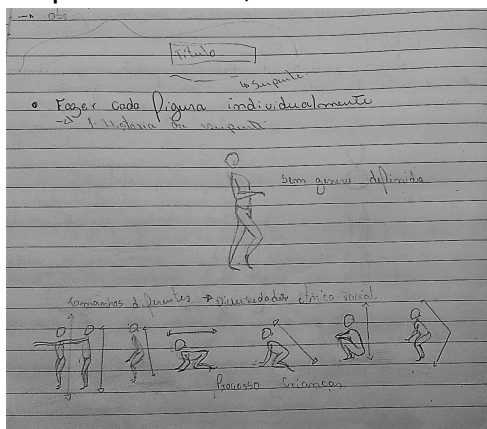 → Obs:
Título
↳ serpente.
• Fazer cada figura individualmente
→ 1- História da serpente
Sem genero definido
Tamanhos diferentes → Diversidades étnico-racial.
Processo Crianças